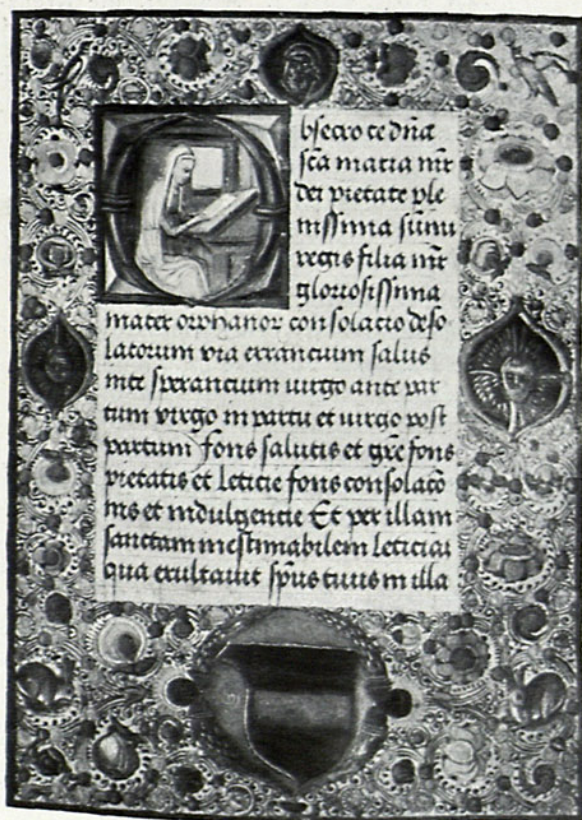 Obsecro te dn̄a
sc̄a maria mr̄
dei pietate ple
nissima sum̄i
regis filia mr̄
gloriosissima
mater orphanor consolacio deso
latorum via errancium salus
inte sperancium uirgo ante par
tum virgo in partu et uirgo post
partum fons salutis et gr̄e fons
pietatis et leticie fons consolacō
nis et indulgencie Et per illam
sanctam inestimabilem leticiā
qua exultauit sp̄us tuus in illa